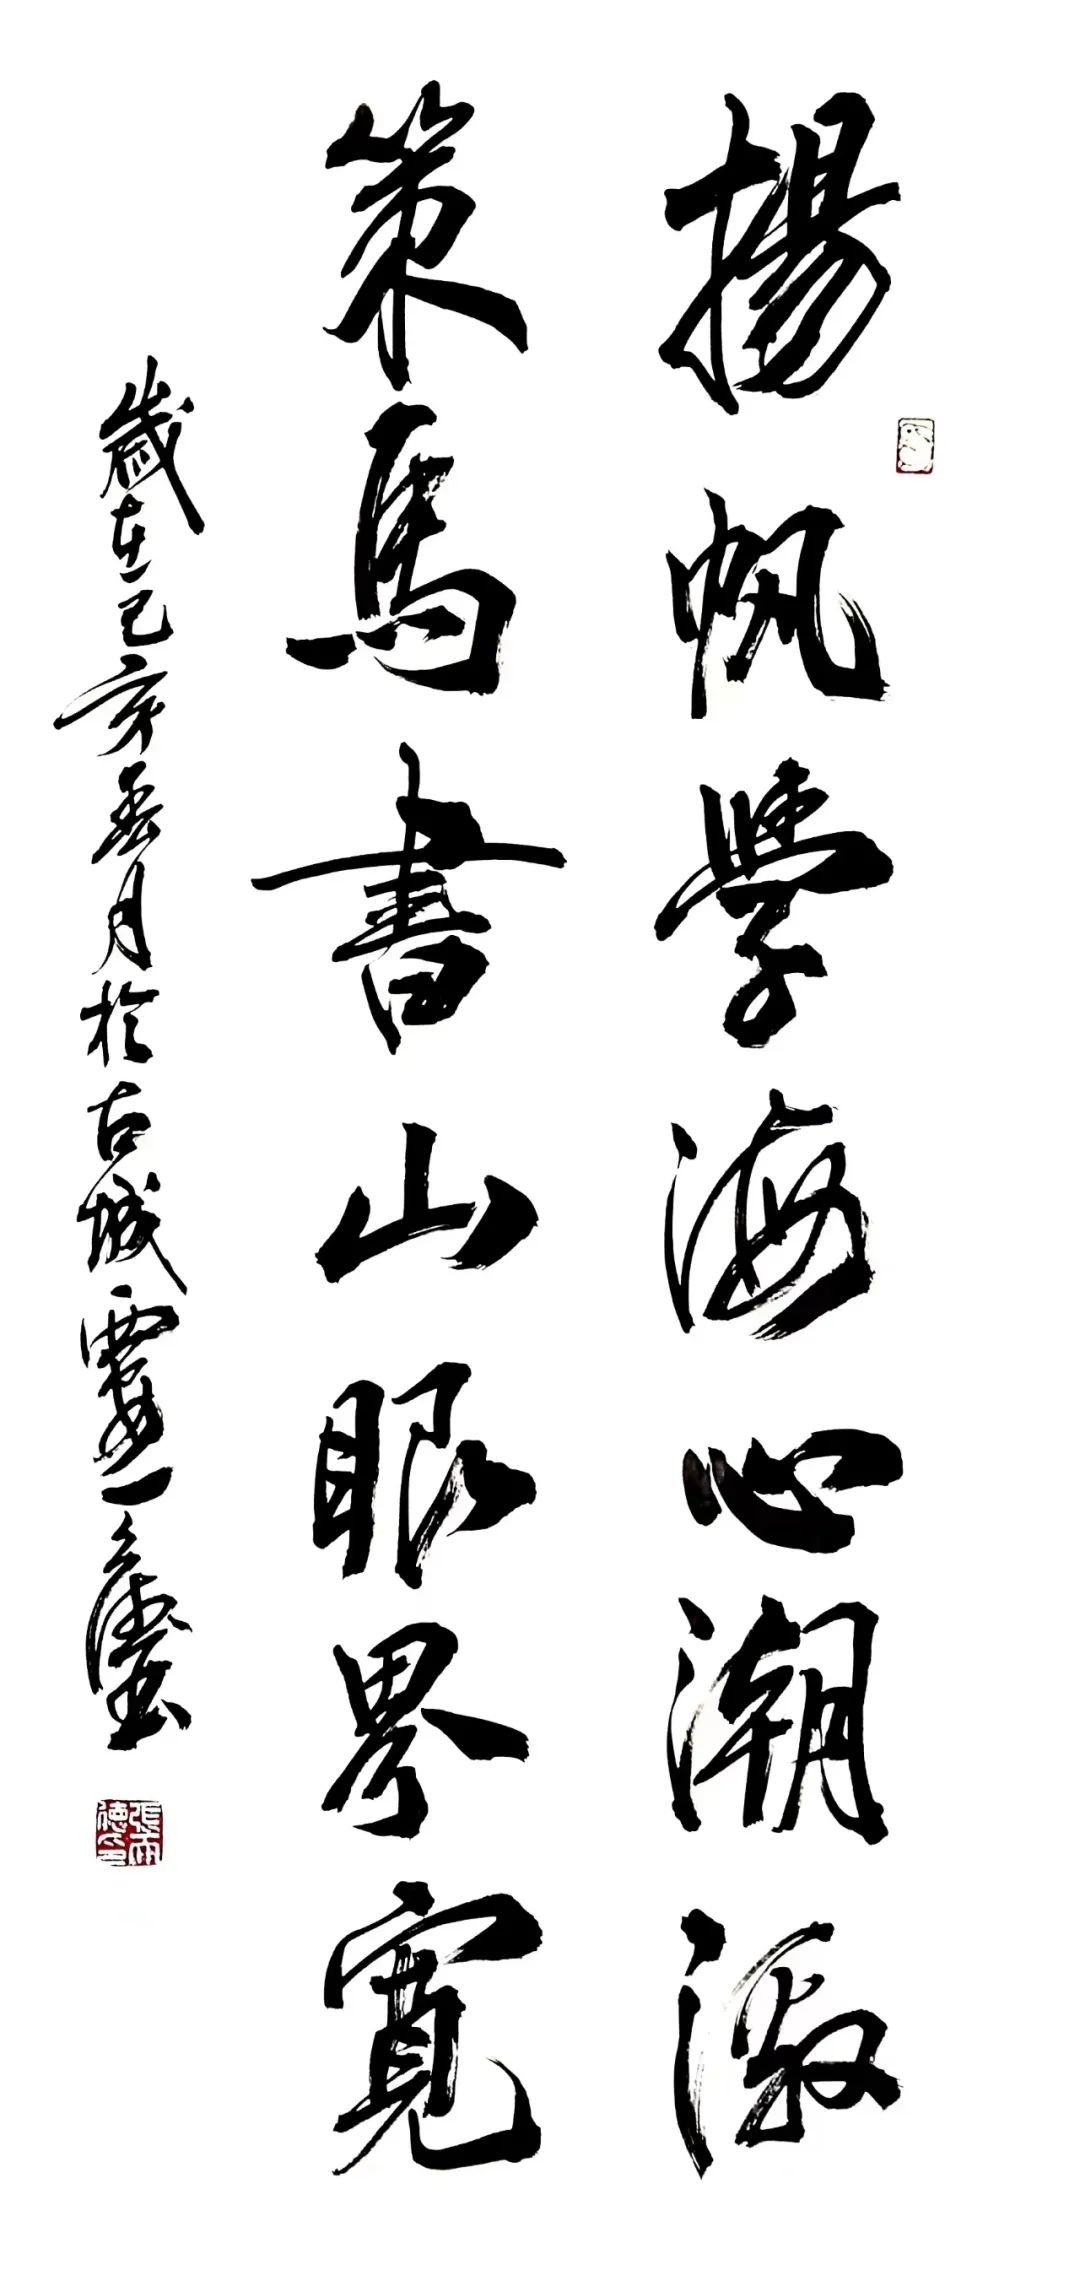 揚帆学海心潮激
策馬書山眼界寬
歲在己亥 月於古城
張雨德印